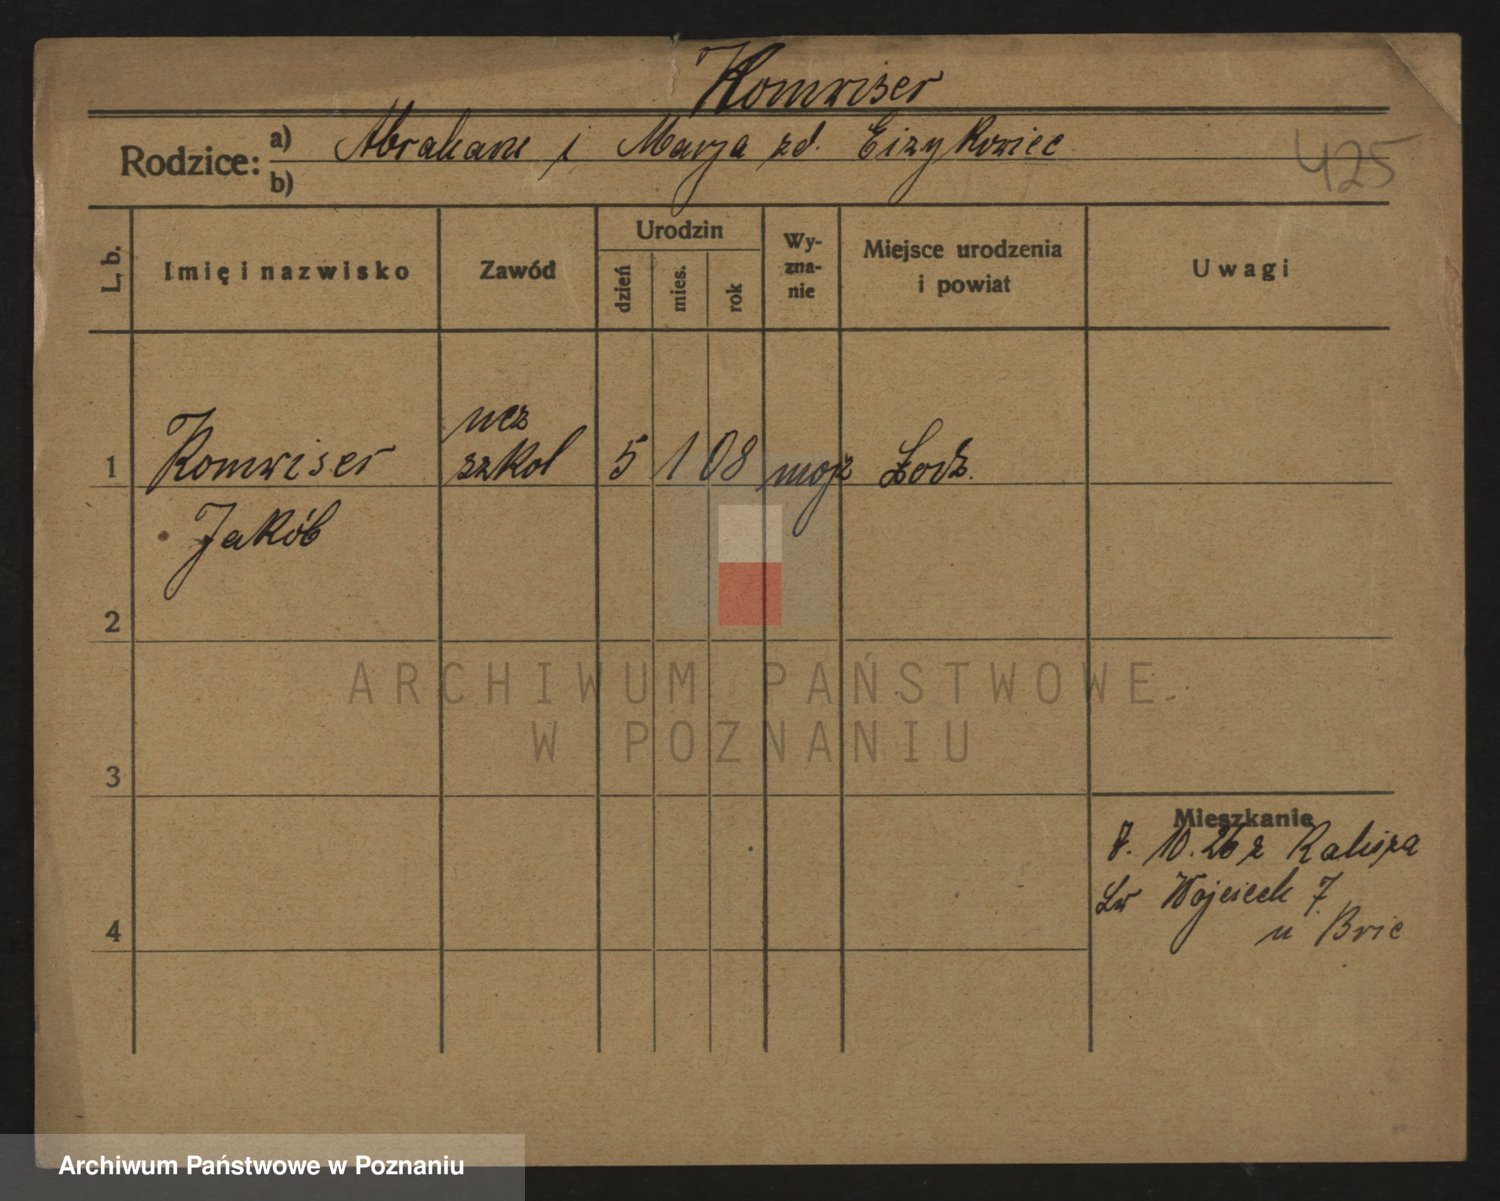 Komwiser
Rodzice: a) Abraham i Marja zd.
b)
425
L. b. Imię i nazwisko Zawód Urodzin dzień mies. rok Wyzna-nie Miejsce urodzenia i powiat Uwagi
ucz
1 Komwiser szkol 5 1 08 mojż Łodź.
Jakób
2
3
4
Mieszkanie
7. 10. 26 z Kalisza
Św Wojciech 7
u Bric
ARCHIWUM PAŃSTWOWE
W POZNANIU
Archiwum Państwowe w Poznaniu